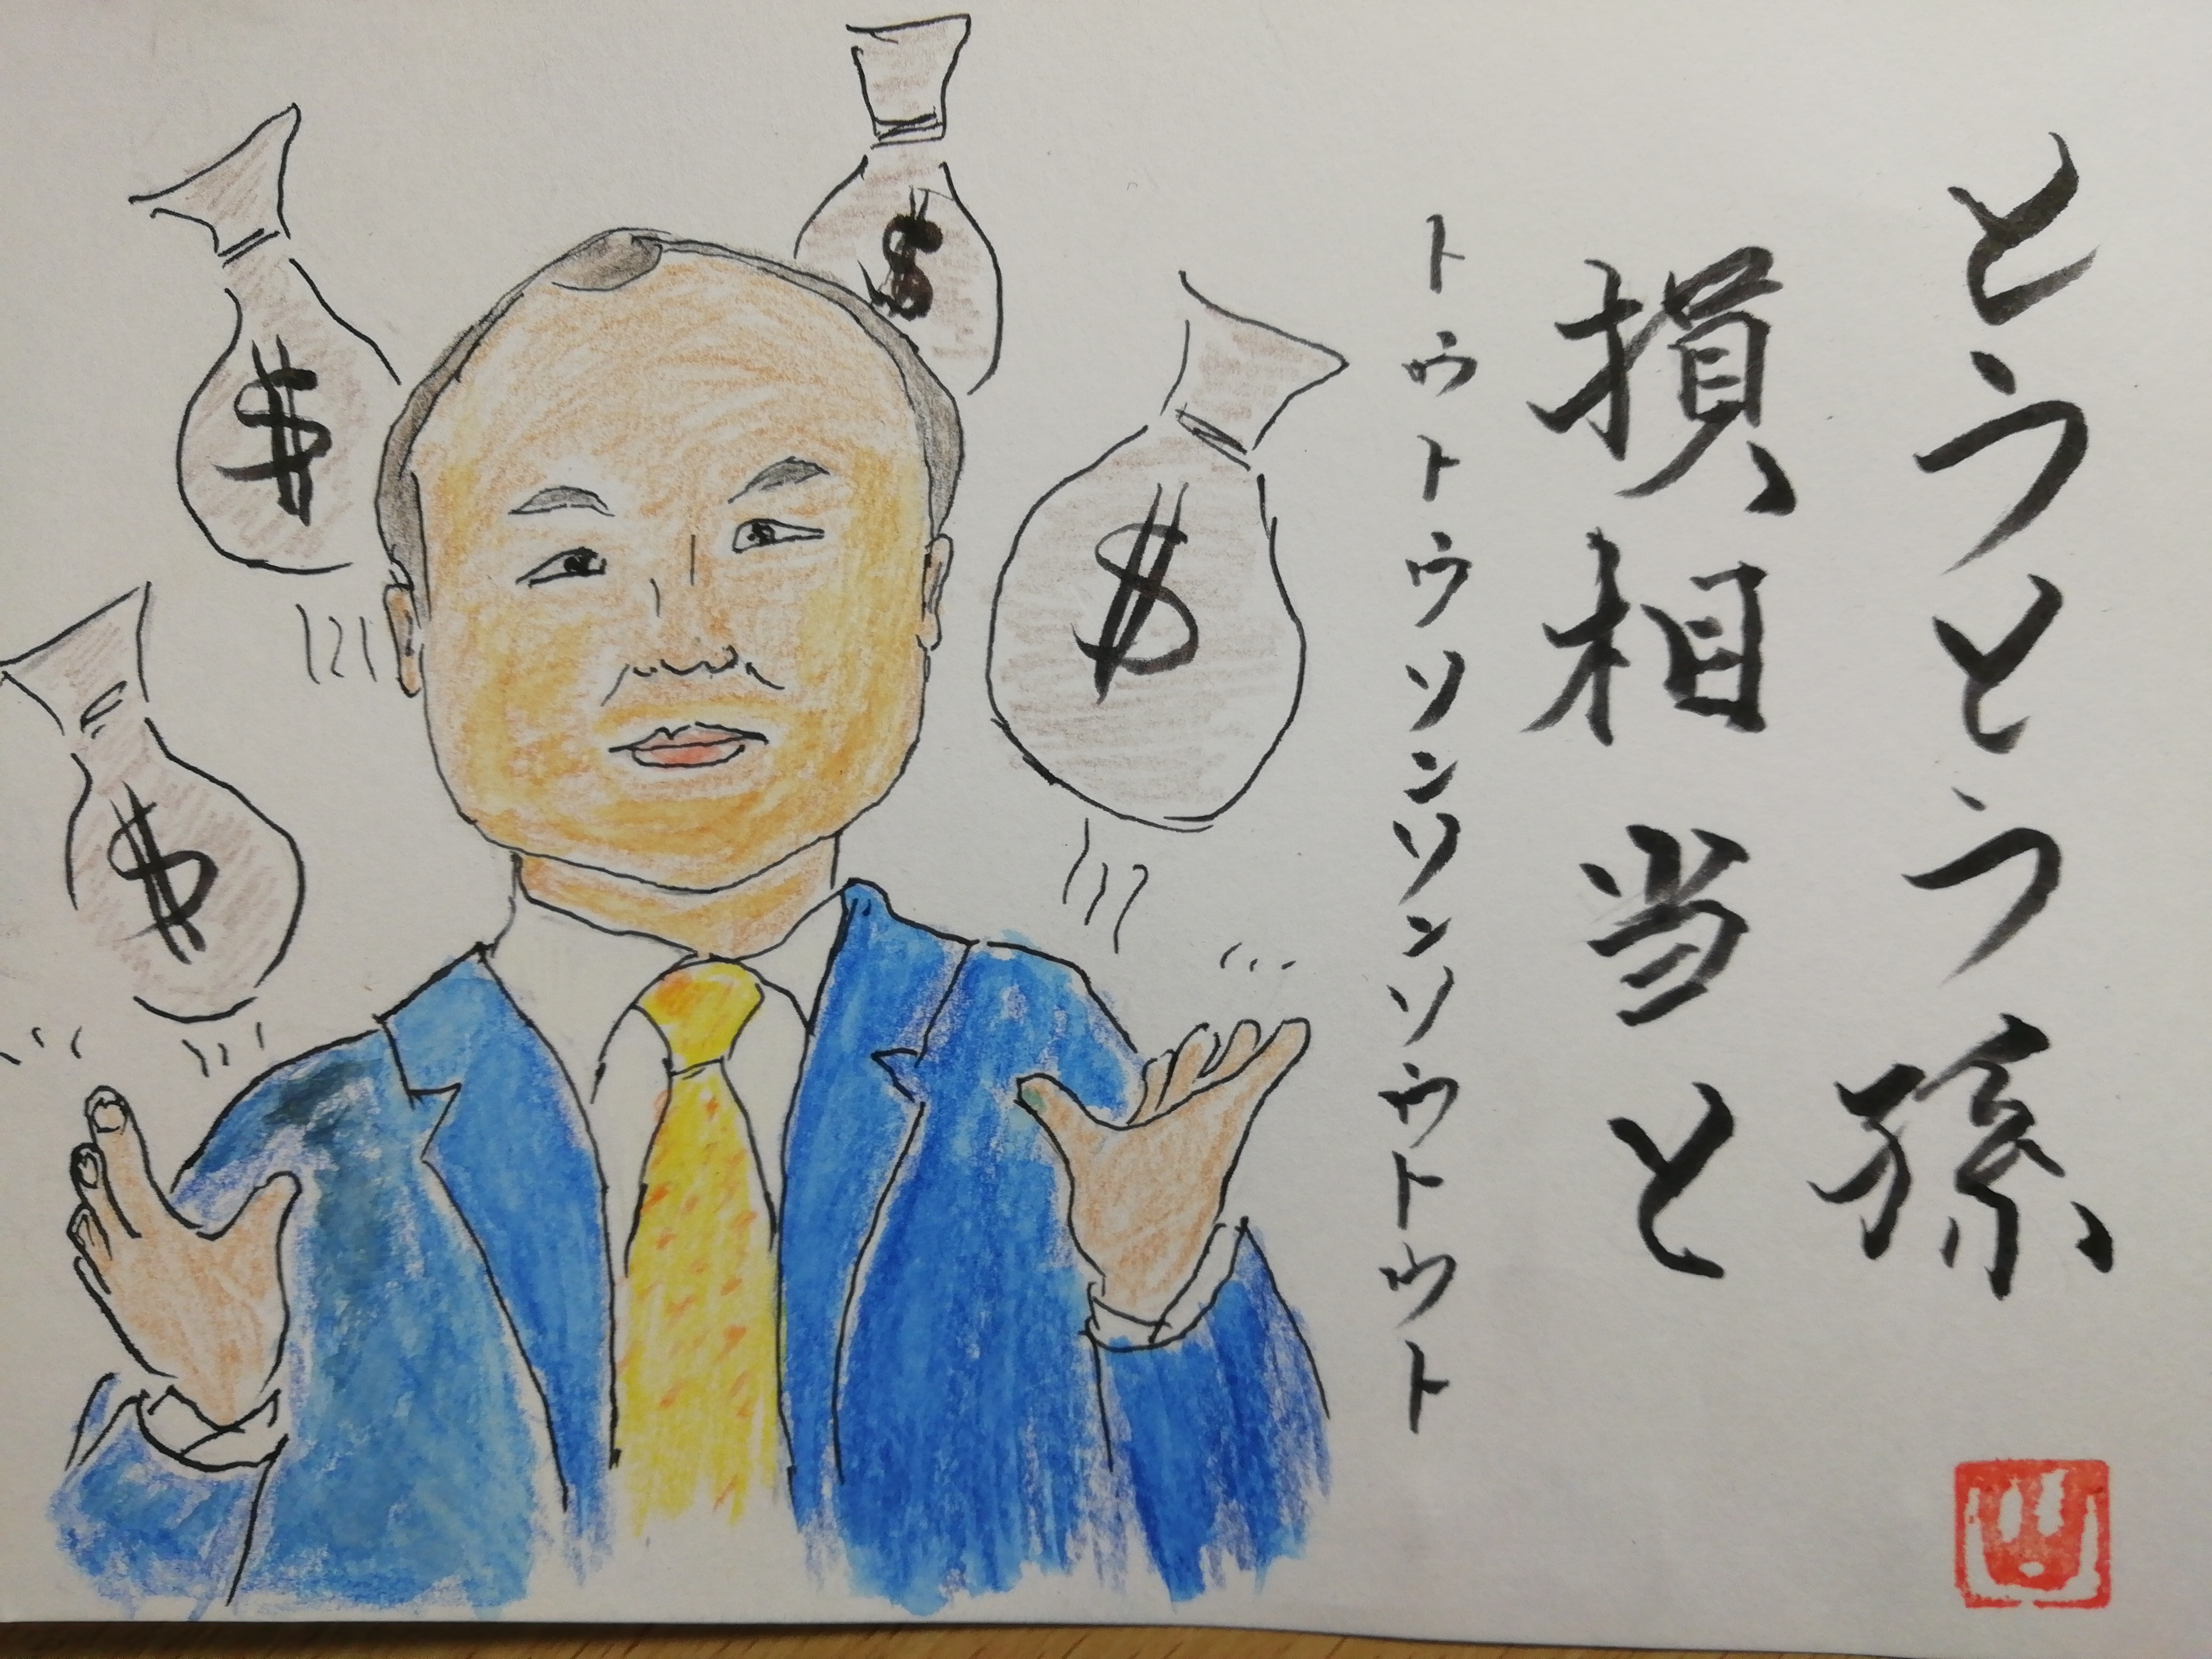 とうとう孫
損相当と
トウトウソンソンソウトウト
$
$
$
$